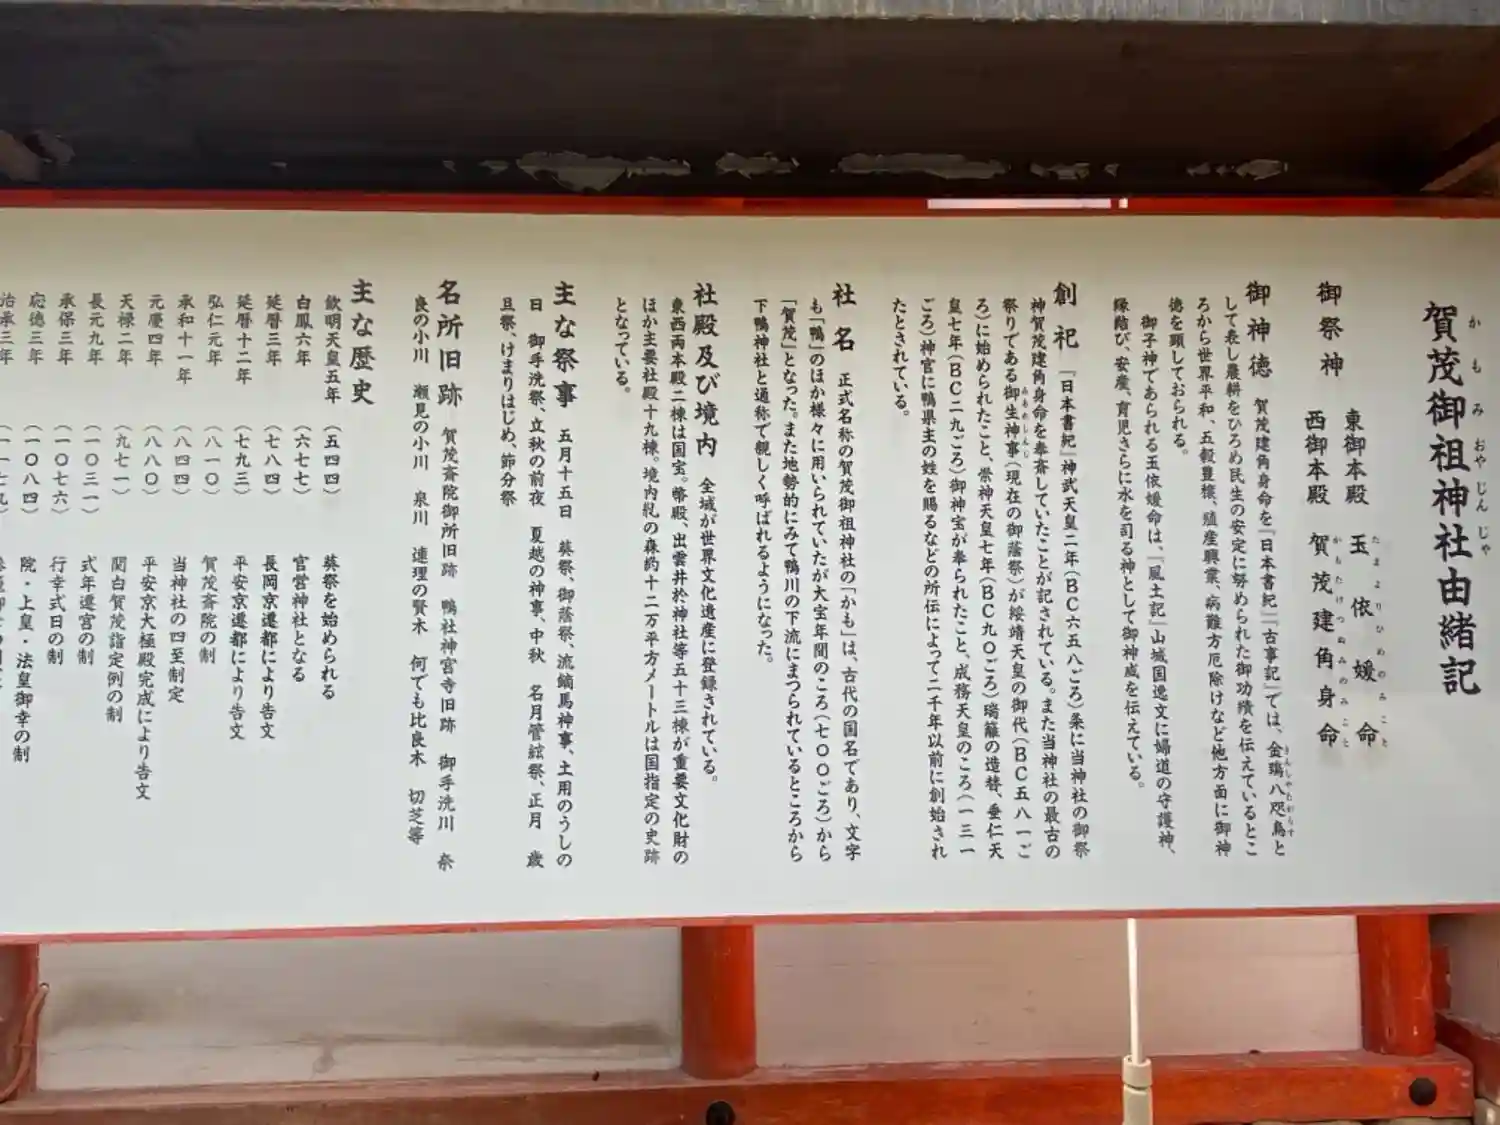 賀茂御祖神社由緒記
かもみおやじんじゃ
御祭神
東御本殿 玉依媛命
たまよりひめのみこと
西御本殿 賀茂建角身命
かもたけつぬみのみこと
御神徳 賀茂建角身命を『日本書紀』『古事記』では、金鵄八咫烏と
きんしやたがらす
して表し農耕をひろめ民生の安定に努められた御功績を伝えているとこ
ろから世界平和、五穀豊穣、殖産興業、病難方厄除けなど他方面に御神
徳を顕しておられる。
御子神であられる玉依媛命は、『風土記』山城国逸文に婦道の守護神、
縁結び、安産、育児さらに水を司る神として御神威を伝えている。
創祀 『日本書紀』神武天皇二年(BC六五八ごろ)条に当神社の御祭
神賀茂建角身命を奉斎していたことが記されている。また当神社の最古の
祭りである御生神事(現在の御蔭祭)が綏靖天皇の御代(BC五八一ご
みあれしんじ
ろ)に始められたこと、崇神天皇七年(BC九〇ごろ)瑞籬の造替、垂仁天
皇七年(BC二九ごろ)御神宝が奉られたこと、成務天皇のころ(一三一
ごろ)神宮に鴨県主の姓を賜るなどの所伝によって二千年以前に創始され
たとされている。
社名 正式名称の賀茂御祖神社の「かも」は、古代の国名であり、文字
も「鴨」のほか様々に用いられていたが大宝年間のころ(七〇〇ごろ)から
「賀茂」となった。また地勢的にみて鴨川の下流にまつられているところから
下鴨神社と通称で親しく呼ばれるようになった。
社殿及び境内 全域が世界文化遺産に登録されている。
東西両本殿二棟は国宝。幣殿、出雲井於神社等五十三棟が重要文化財の
ほか主要社殿十九棟。境内糺の森約十二万平方メートルは国指定の史跡
となっている。
主な祭事 五月十五日 葵祭、御蔭祭、流鏑馬神事、土用のうしの
日 御手洗祭、立秋の前夜 夏越の神事、中秋 名月管絃祭、正月 歳
旦祭、けまりはじめ、節分祭
名所旧跡 賀茂斎院御所旧跡 鴨社神宮寺旧跡 御手洗川 奈
良の小川 瀬見の小川 泉川 連理の賢木 何でも比良木 切芝等
主な歴史
欽明天皇五年 (五四四) 葵祭を始められる
白鳳六年 (六七七) 官営神社となる
延暦三年 (七八四) 長岡京遷都により告文
延暦十二年 (七九三) 平安京遷都により告文
弘仁元年 (八一〇) 賀茂斎院の制
承和十一年 (八四四) 当神社の四至制定
元慶四年 (八八〇) 平安京大極殿完成により告文
天禄二年 (九七一) 関白賀茂詣定例の制
長元九年 (一〇三一) 式年遷宮の制
承保三年 (一〇七六) 行幸式日の制
応徳三年 (一〇八四) 院・上皇・法皇御幸の制
治承三年 (一一七九)